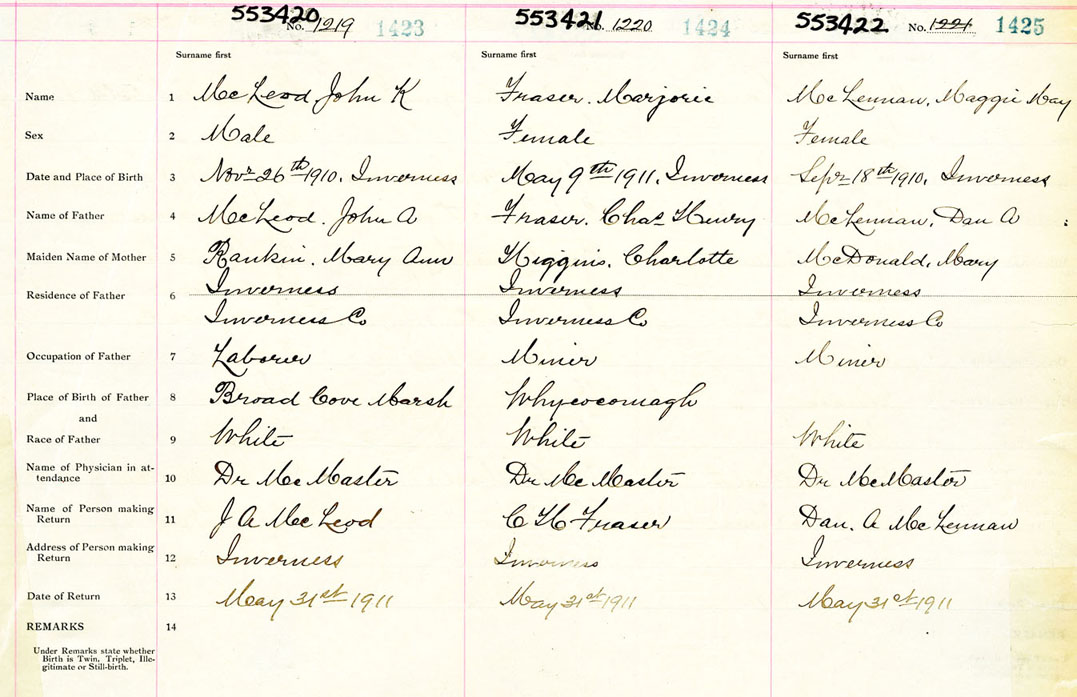 553420 No. 1219 1423 553421 No. 1220 1424 553422 No. 1221 1425
Surname first Surname first Surname first
Name 1 McLeod, John K Fraser. Marjorie McLennan, Maggie May
Sex 2 Male Female Female
Date and Place of Birth 3 Novr 26th 1910. Inverness May 9th 1911, Inverness Sepr 18th 1910, Inverness
Name of Father 4 McLeod. John A Fraser. Chas Henry McLennan, Dan A
Maiden Name of Mother 5 Rankin. Mary Ann Higgins. Charlotte McDonald, Mary
Residence of Father 6 Inverness Inverness Inverness
Inverness Co Inverness Co Inverness Co
Occupation of Father 7 Laborer Miner Miner
Place of Birth of Father 8 Broad Cove Marsh Whycocomagh
and
Race of Father 9 White White White
Name of Physician in at-
tendance 10 Dr McMaster Dr McMaster Dr McMaster
Name of Person making
Return 11 J A McLeod C H Fraser Dan. A McLennan
Address of Person making
Return 12 Inverness Inverness Inverness
Date of Return 13 May 31st 1911 May 31st 1911 May 31st 1911
REMARKS 14
Under Remarks state whether
Birth is Twin, Triplet, Ille-
gitimate or Still-birth.